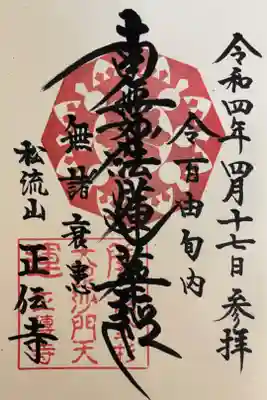 令和四年四月十七日参拝
令百由旬内
南無妙法蓮華経
無諸衰患
松流山
正伝寺